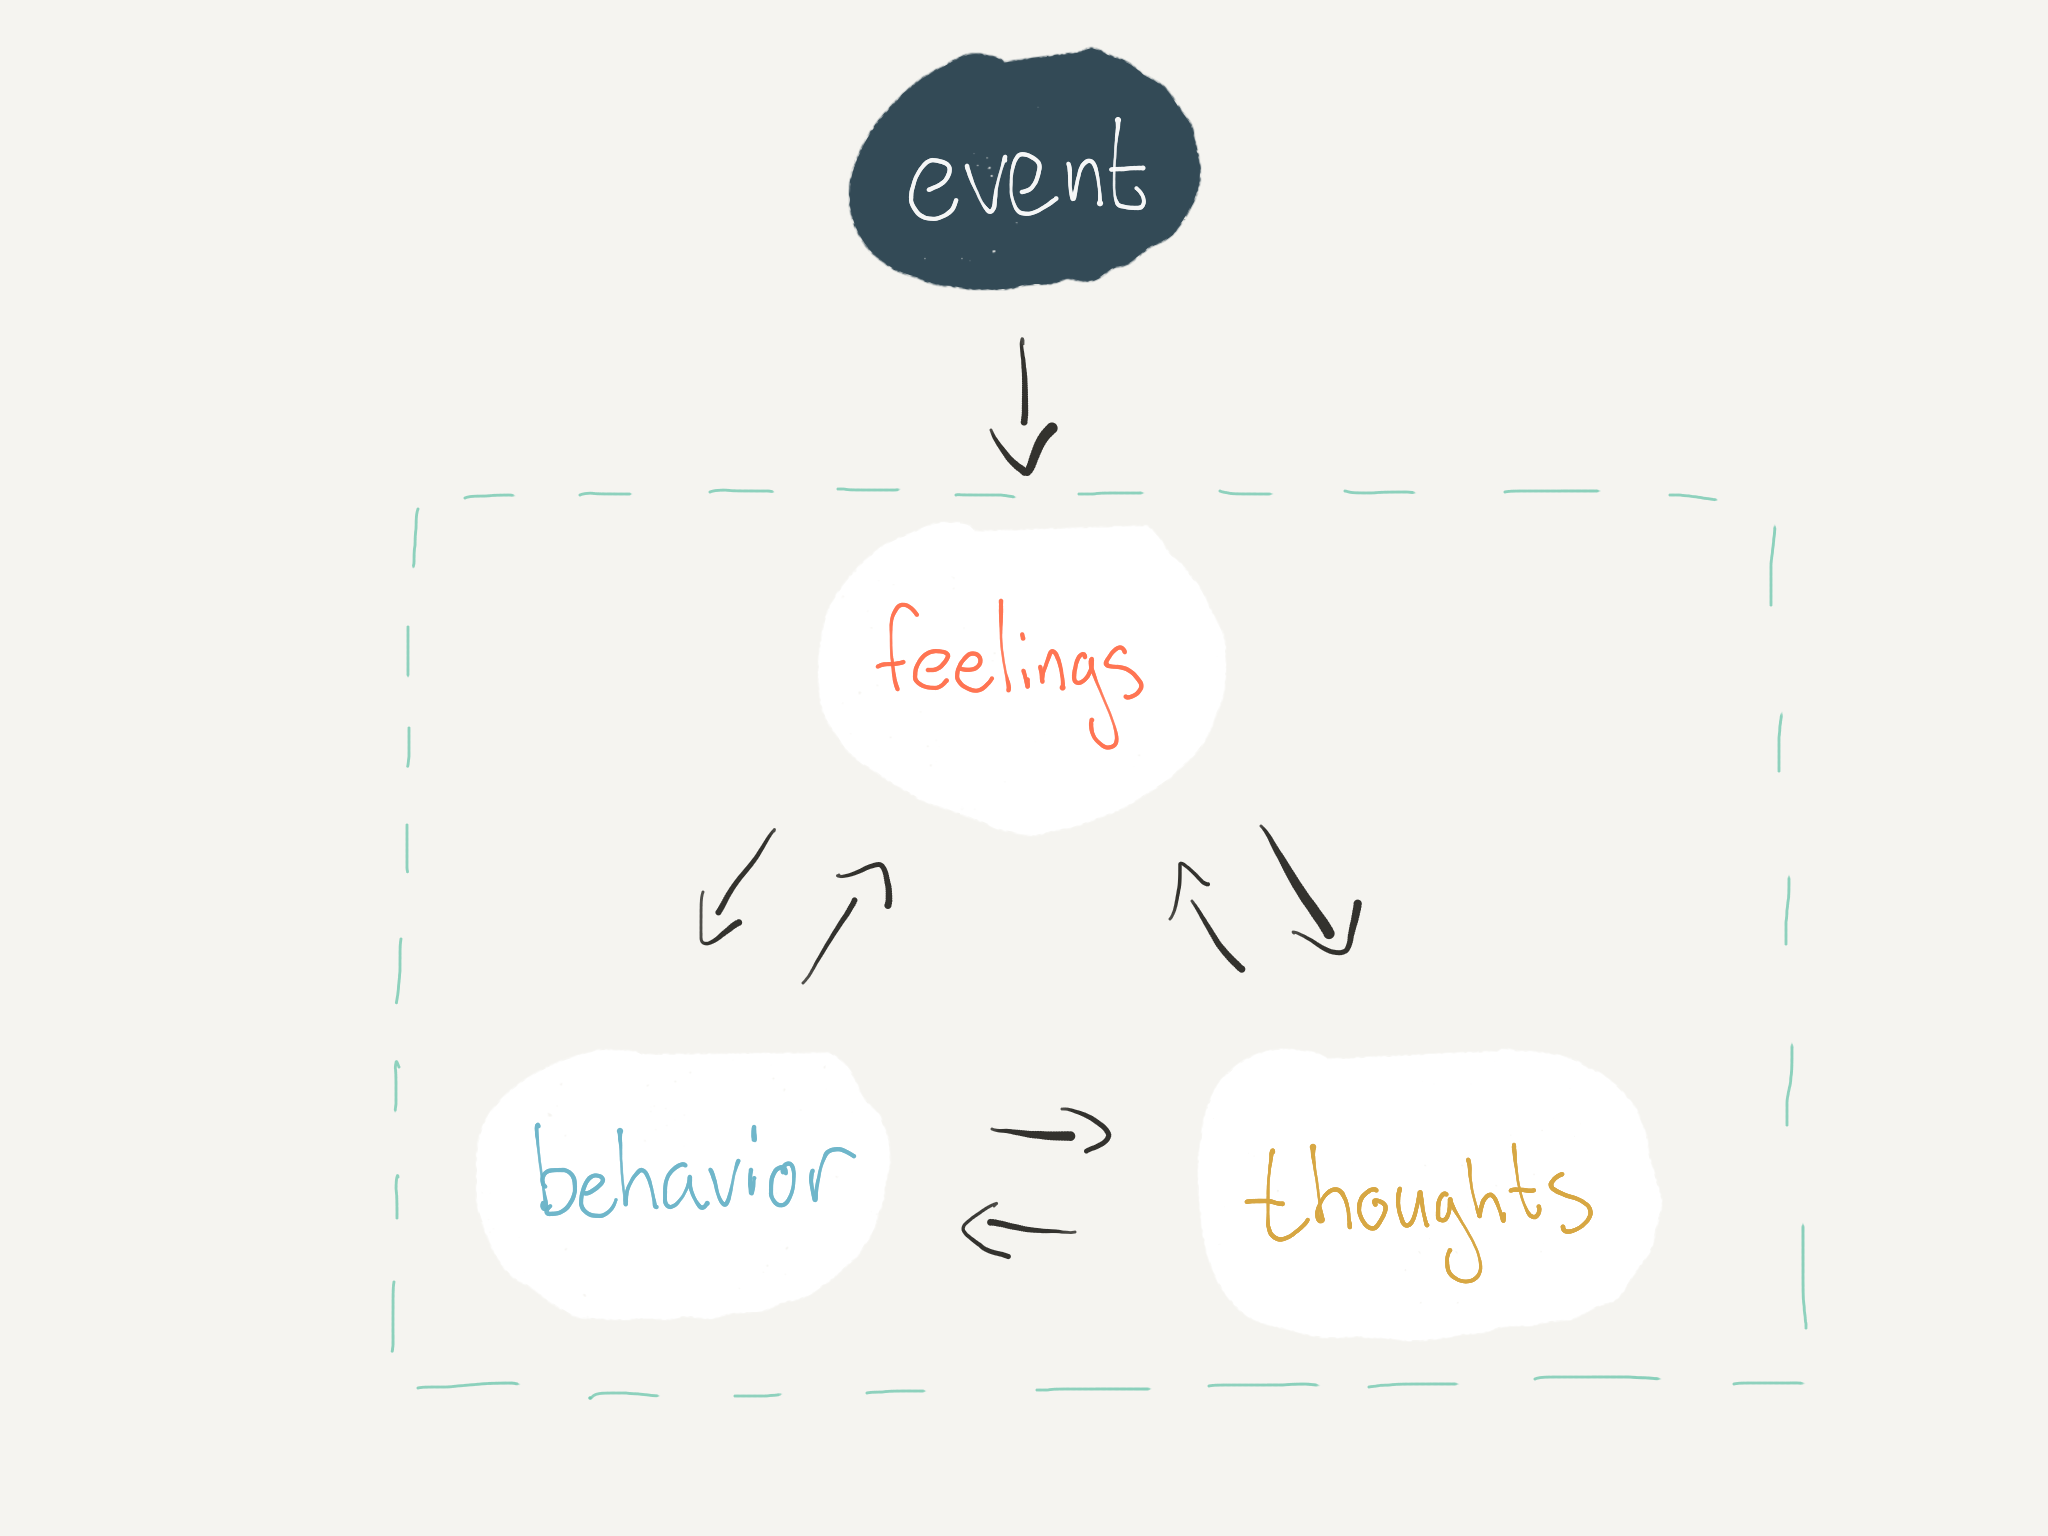 event
feelings
behavior
thoughts